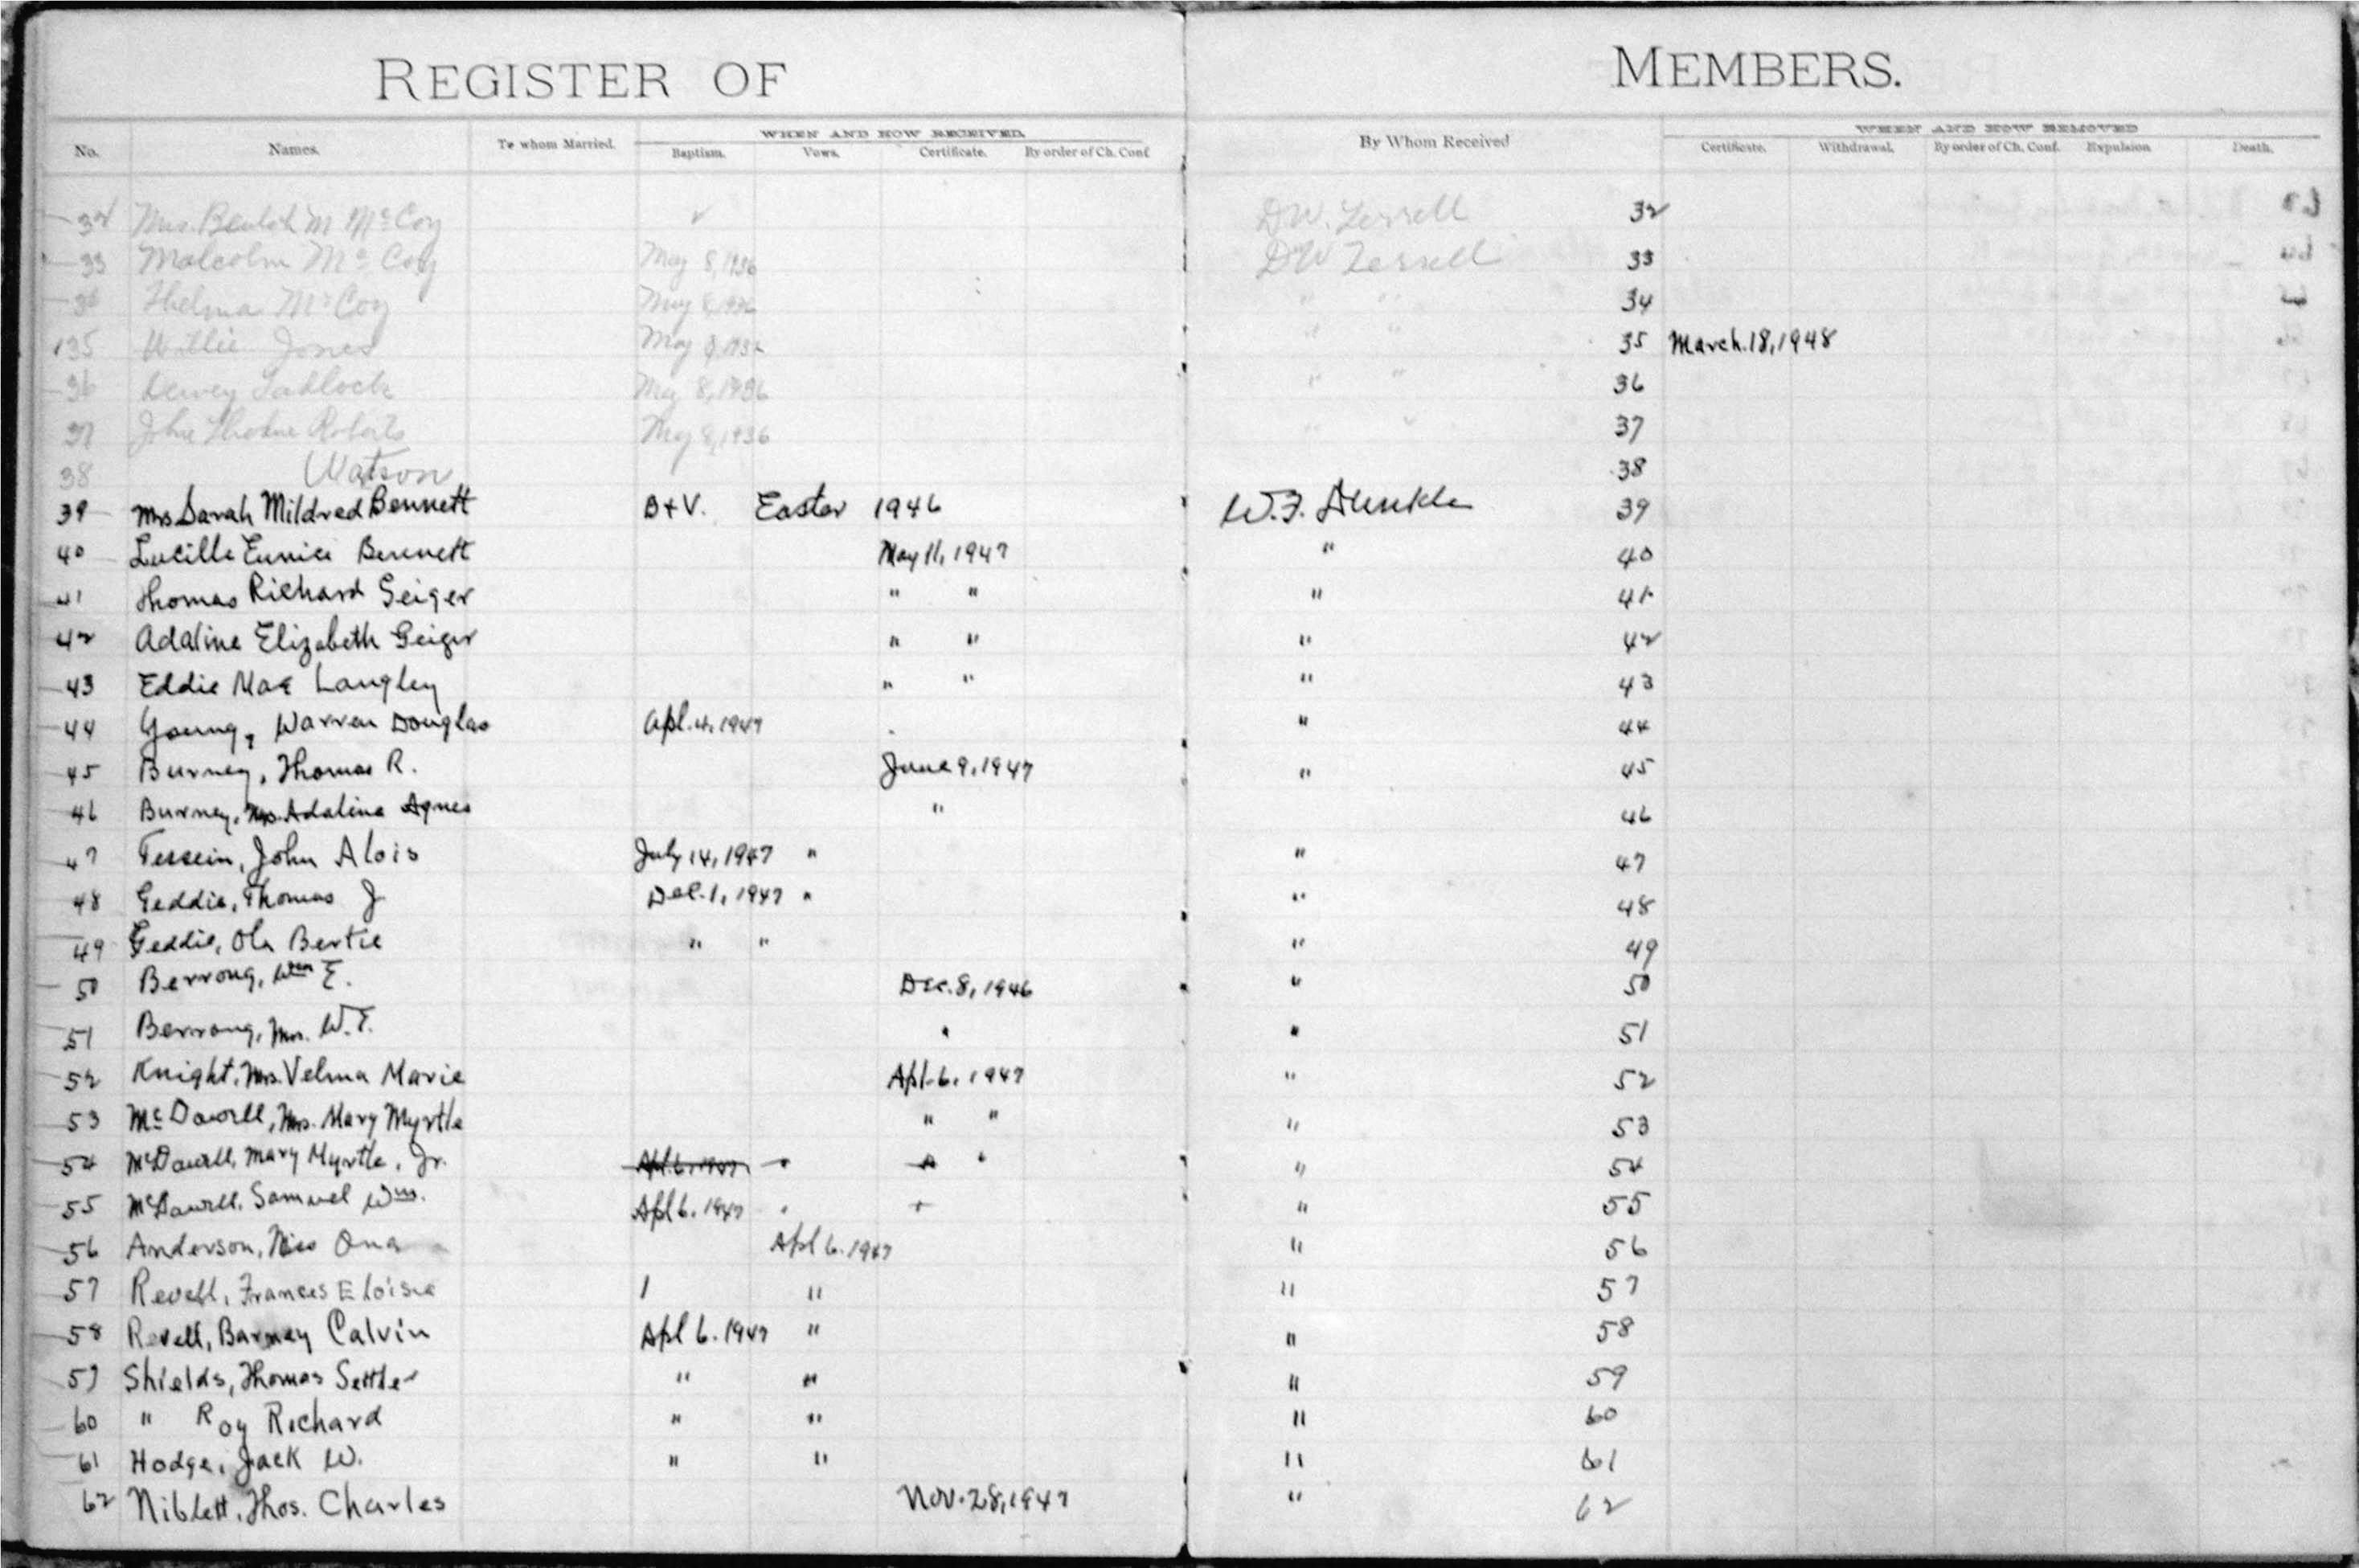 REGISTER OF MEMBERS.
No. Names. To whom Married. WHEN AND HOW RECEIVED. Baptism. Vows. Certificate. By order of Ch. Conf. By Whom Received WHEN AND HOW REMOVED Certificate. Withdrawal. By order of Ch. Conf. Expulsion Death.
32 Mrs. Beulah M McCoy ✓ D W. Terrell 32
33 Malcolm McCoy May 8, 1936 D W Terrell 33
34 Thelma McCoy May 8, 1936 " " 34
35 Willie Jones May 8, 1936 " " 35 March. 18, 1948
36 Dewey Tablock May 8, 1936 " " 36
37 John Roberts May 8, 1936 " " 37
38 Watson 38
39 Mrs Sarah Mildred Bennett B+V. Easter 1946 W. F. Dunkle 39
40 Lucille Eunice Bennett May 11, 1947 " 40
41 Thomas Richard Geiger " " " 41
42 Adaline Elizabeth Geiger " " " 42
43 Eddie Mae Langley " " " 43
44 Young, Warren Douglas Apl. 4, 1947 " 44
45 Burney, Thomas R. June 9, 1947 " 45
46 Burney, Mrs. Adaline Agnes " 46
47 Tessein, John Alois July 14, 1947 " " 47
48 Geddie, Thomas J Dec. 1, 1947 " " 48
49 Geddie, Ola Bertie " " " 49
50 Berrong, Wm E. Dec. 8, 1946 " 50
51 Berrong, Mrs. W. E. " " 51
52 Knight, Mrs. Velma Marie Apl. 6, 1947 " 52
53 McDowell, Mrs. Mary Myrtle " " " 53
54 McDowell, Mary Myrtle, Jr. Apl. 6, 1947 " " " " 54
55 McDowell, Samuel Wm. Apl 6. 1947 " + " 55
56 Anderson, Miss Ona Apl 6. 1947 " 56
57 Revell, Frances Eloise 1 " " 57
58 Revell, Barney Calvin Apl 6. 1947 " " 58
59 Shields, Thomas Settler " " " 59
60 " Roy Richard " " " 60
61 Hodge, Jack W. " " " 61
62 Niblett, Thos. Charles Nov. 28, 1947 " 62